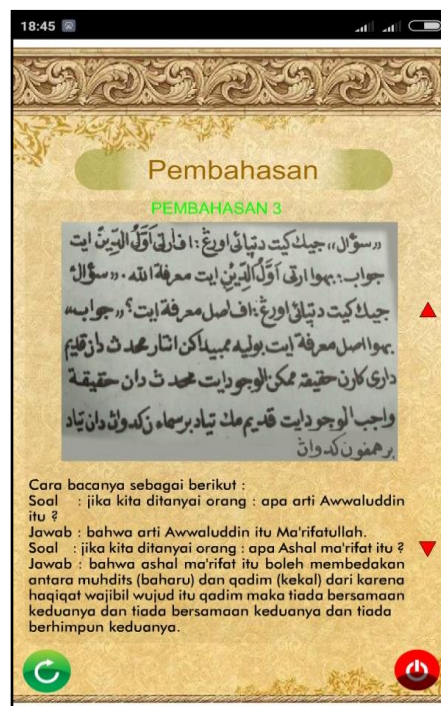 18:45
Pembahasan
PEMBAHASAN 3
«سؤال» جيك كيت دتيائي اورڠ: اف ارتي اَوَّلُ الدِّيْنِ ايت
جواب: بهوا ارتي اَوَّلُ الدِّيْنِ ايت معرفة الله. «سؤال»
جيك كيت دتيائي اورڠ: اف اصل معرفة ايت؟ «جواب»
بهوا اصل معرفة ايت بوليه ممبيداكن انتار محدث دان قديم
داري كارن حقيقة ممكن الوجود ايت محدث دان حقيقة
واجب الوجود ايت قديم مك تياد برسماءن كدوان دان تياد
برهمفونن كدوان
Cara bacanya sebagai berikut :
Soal : jika kita ditanyai orang : apa arti Awwaluddin
itu ?
Jawab : bahwa arti Awwaluddin itu Ma'rifatullah.
Soal : jika kita ditanyai orang : apa Ashal ma'rifat itu ?
Jawab : bahwa ashal ma'rifat itu boleh membedakan
antara muhdits (baharu) dan qadim (kekal) dari karena
haqiqat wajibil wujud itu qadim maka tiada bersamaan
keduanya dan tiada bersamaan keduanya dan tiada
berhimpun keduanya.